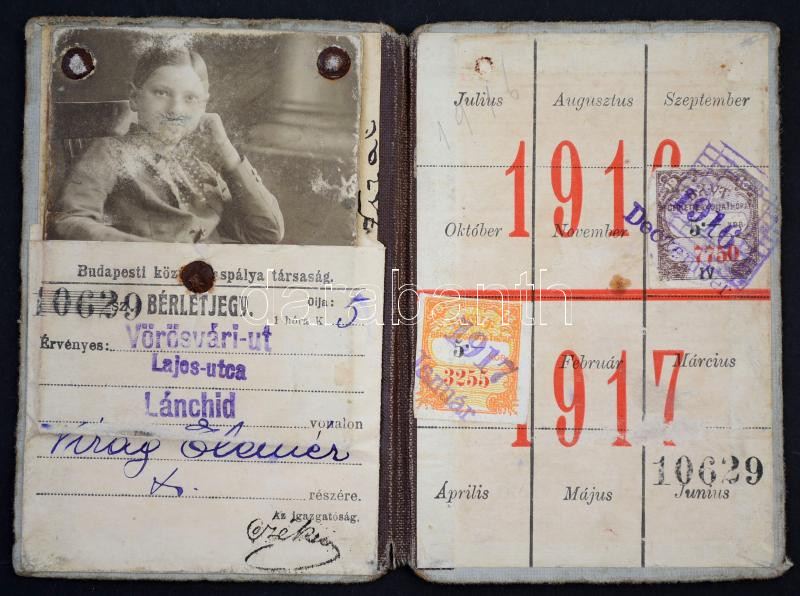 Budapesti köz spálya társaság.
10629 sz. BÉRLETJEGY.
Díja:
1 hóra K 5
Érvényes:
Vörösvári-ut
Lajos-utca
Lánchid
vonalon
Virág Elemér
részére.
Az igazgatóság.
Virág
1916
Julius Augusztus Szeptember
1916
Október November
December
1916
5
7750
IV
1917
Január
5
3255
Február Március
1917
10629
Április Május Junius
darabanth